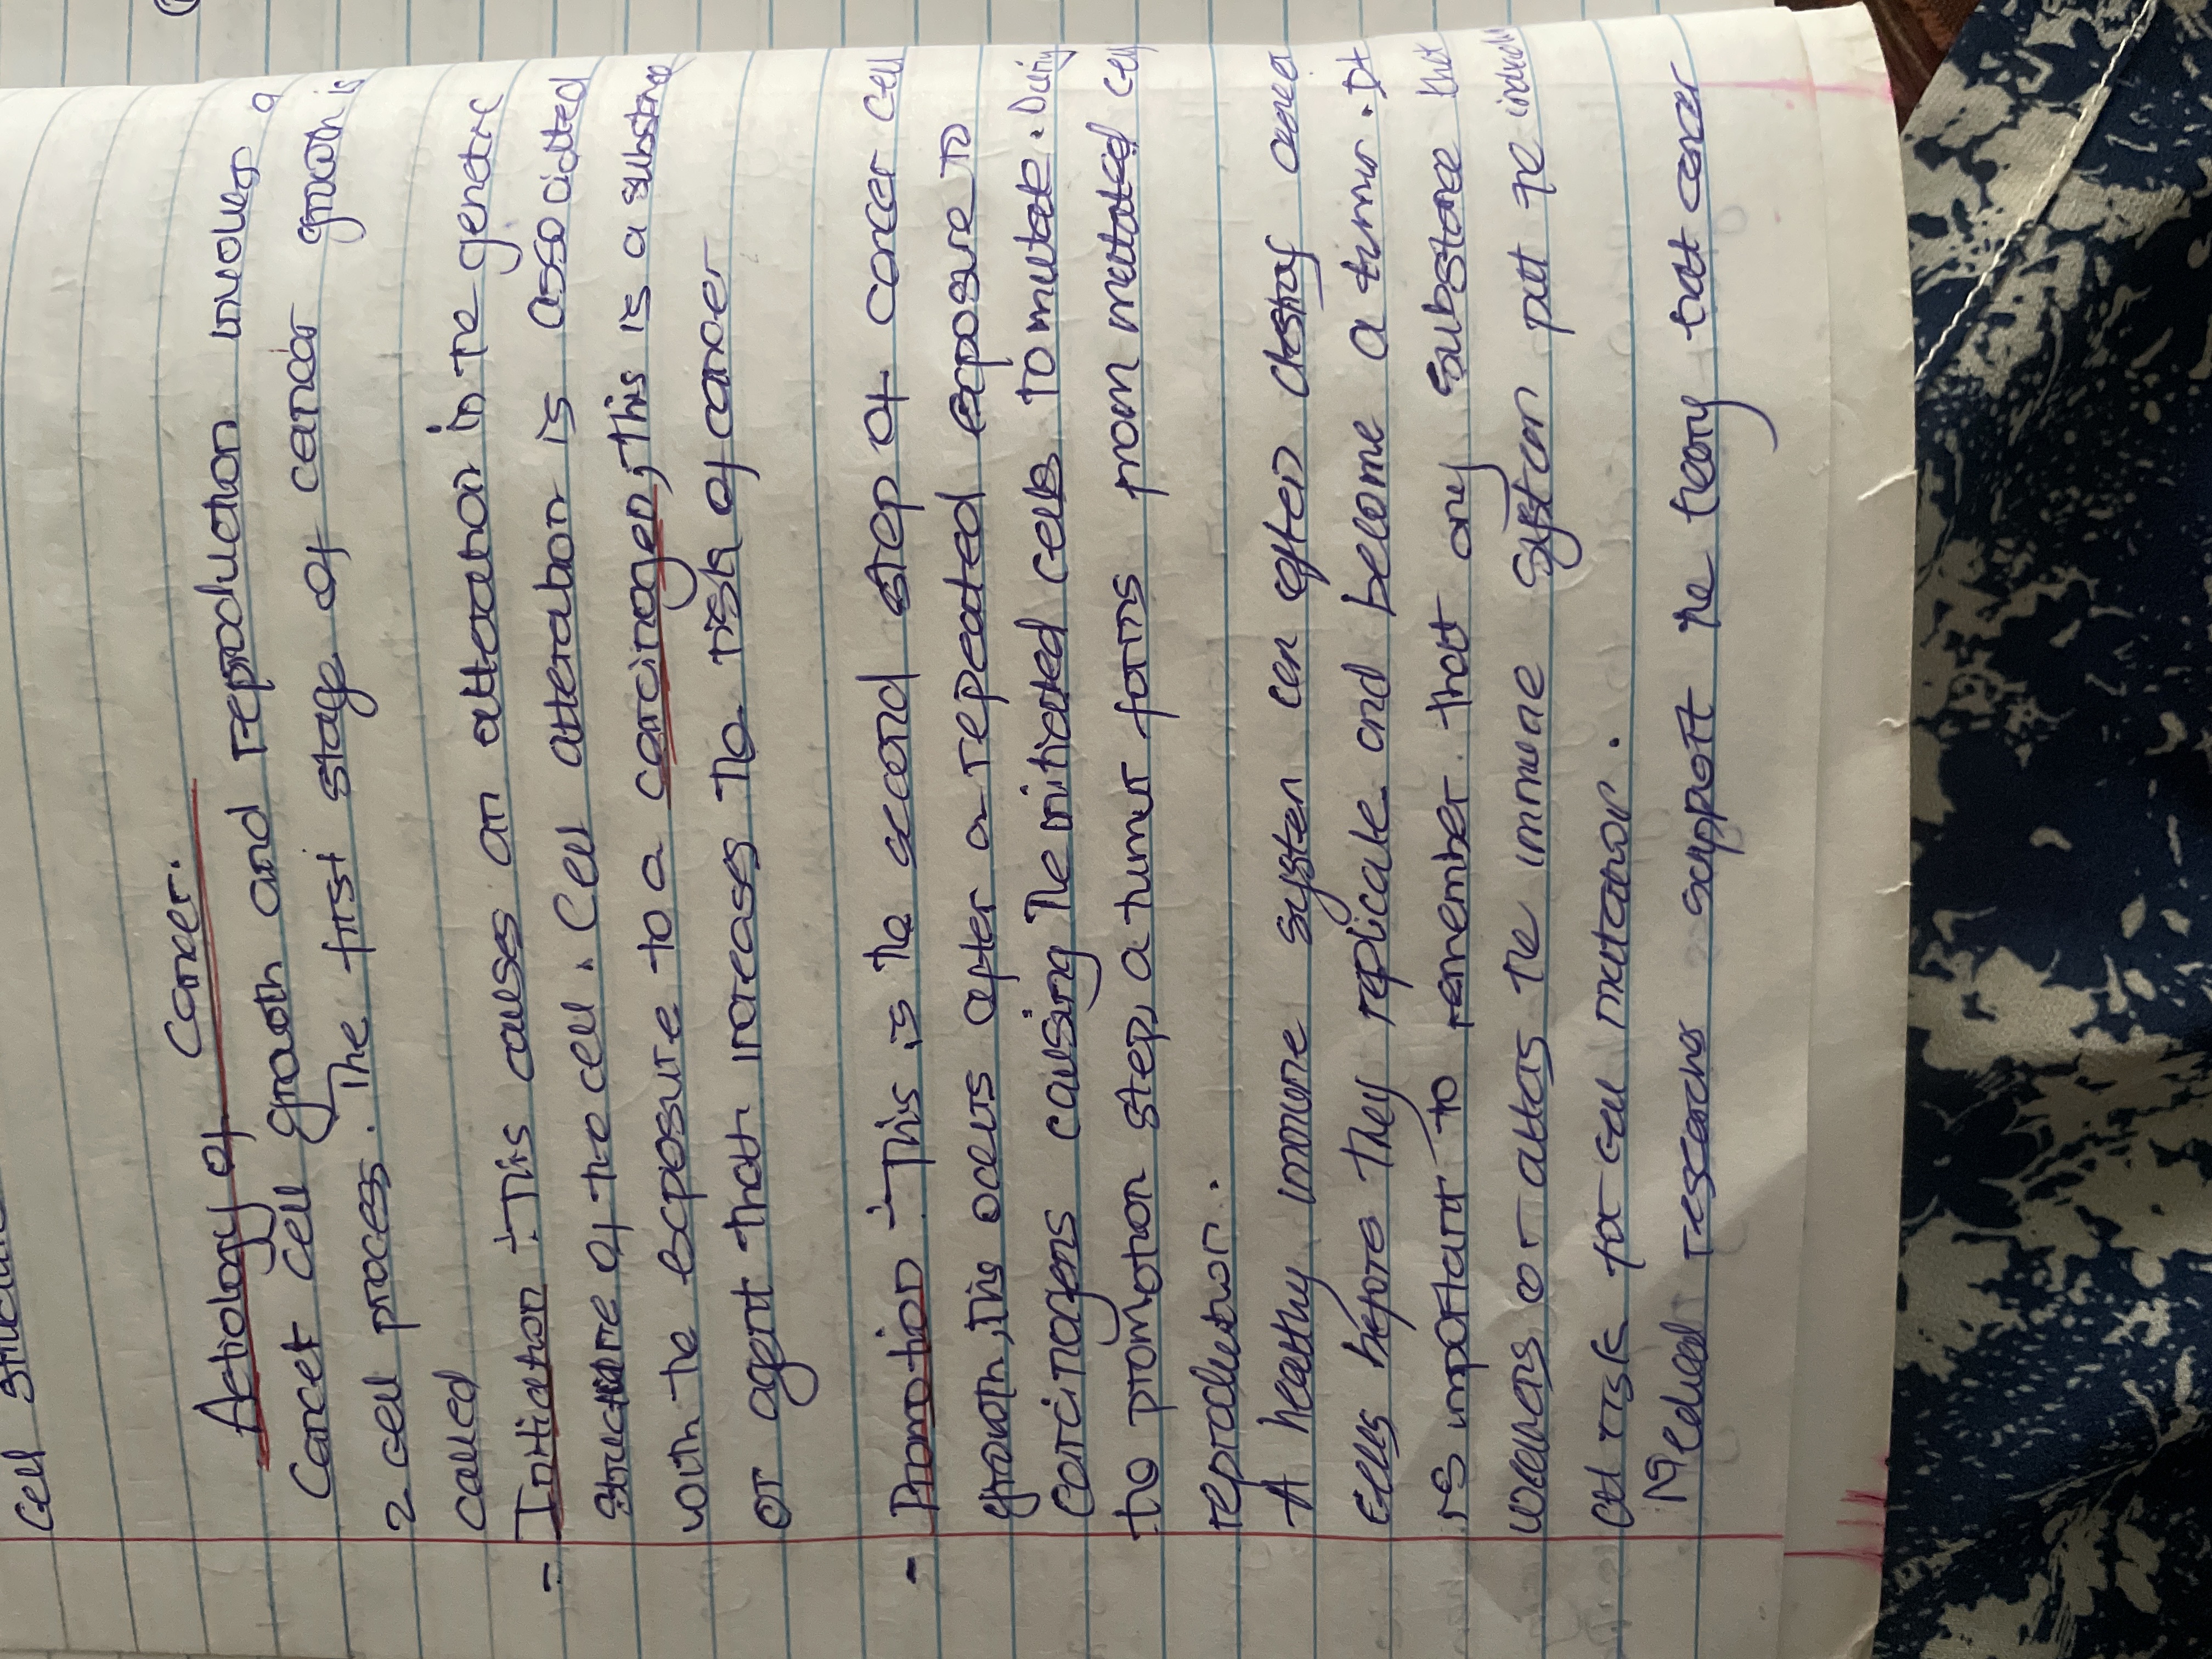 Cell structure
Aetiology of Cancer.
Cancer cell growth and reproduction involves a
2 cell process. The first stage of cancer growth is
called
- Initiation :- This causes an alteration in the genetic
structure of the cell. Cell alteration is associated
with the exposure to a carcinogen, this is a substance
or agent that increases the risk of cancer
- Promotion :- This is the second step of cancer cell
growth, this occurs after a repeated exposure to
carcinogens causing the initiated cells to mutate. During
the promotion step, a tumur forms from mutated cell
reproduction.
A healthy immune system can often destroy cancer
cells before they replicate and become a tumur. It
is important to remember that any substance that
weakens or alters the immune system put the
at risk for cell mutation.
Medical researches support the theory that cancer